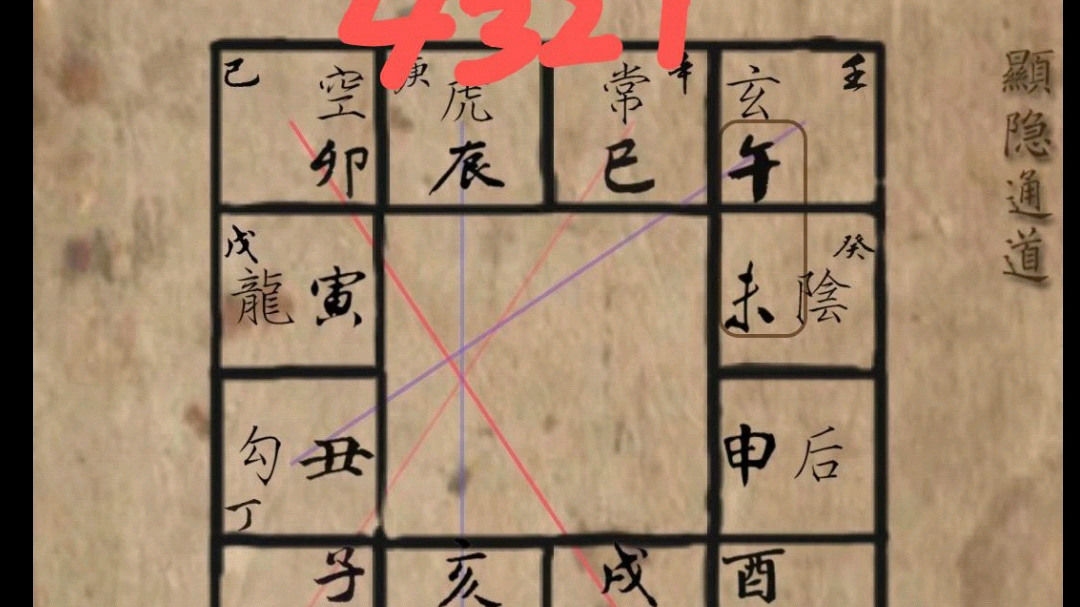 4321
己 空 庚 虎 常 辛 玄 壬
卯 辰 巳 午
戊 龍 寅 未 陰 癸
勾 丑 申 后
丁
子 亥 戌 酉
顯隐通道